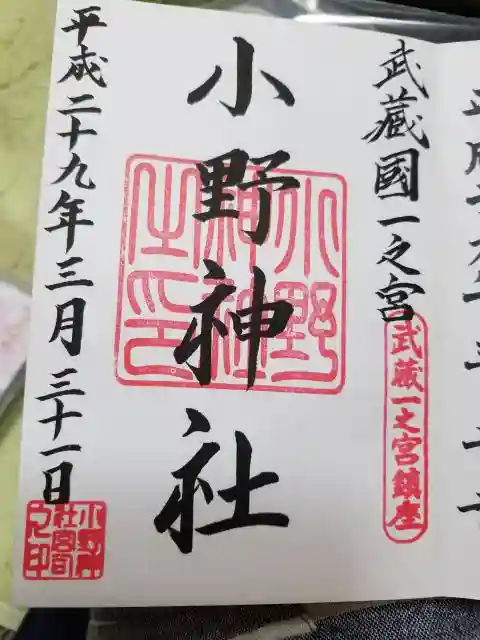 武蔵國一之宮
武蔵一之宮鎮座
小野神社
小野
神社
之印
平成二十九年三月三十一日
小野神
社宮司
之印